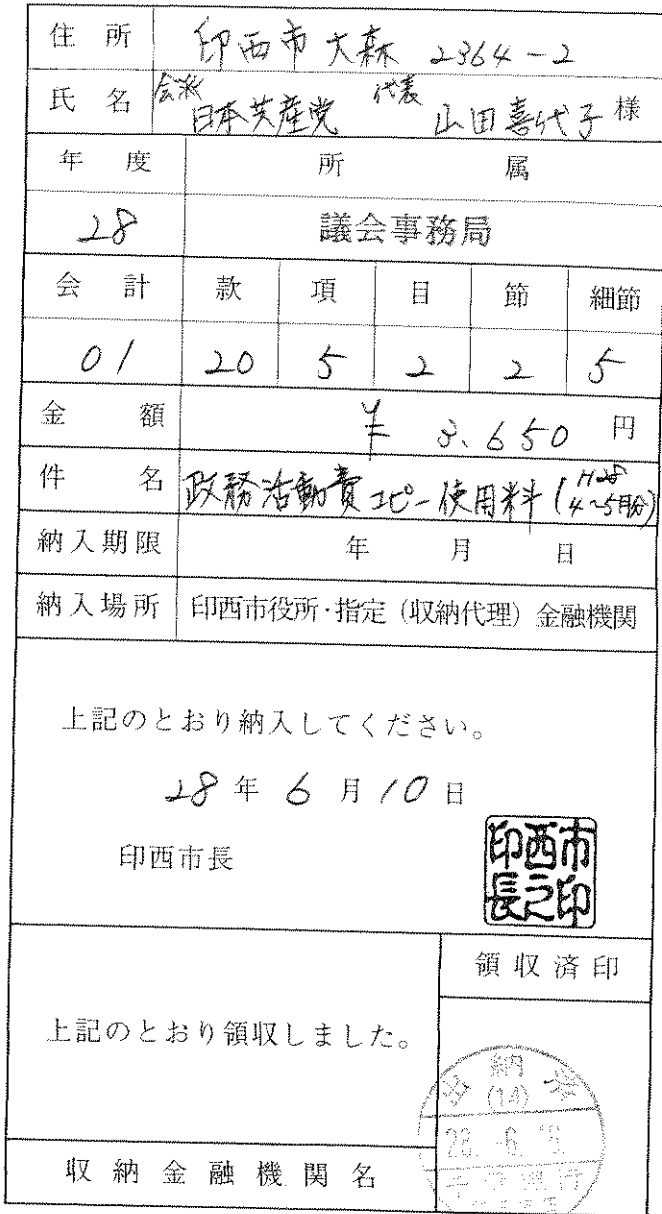 住所 印西市大森 2364-2
氏名 会派 日本共産党 代表 山田喜代子 様
年度 所属
28 議会事務局
会計 款 項 目 節 細節
01 20 5 2 2 5
金額 ¥ 3.650 円
件名 政務活動費コピー使用料 (H28 4~5月分)
納入期限 年 月 日
納入場所 印西市役所・指定(収納代理)金融機関
上記のとおり納入してください。
28年 6月 10日
印西市長
印西市長之印
領収済印
上記のとおり領収しました。
出納
(14)
28. 6.
収納金融機関名